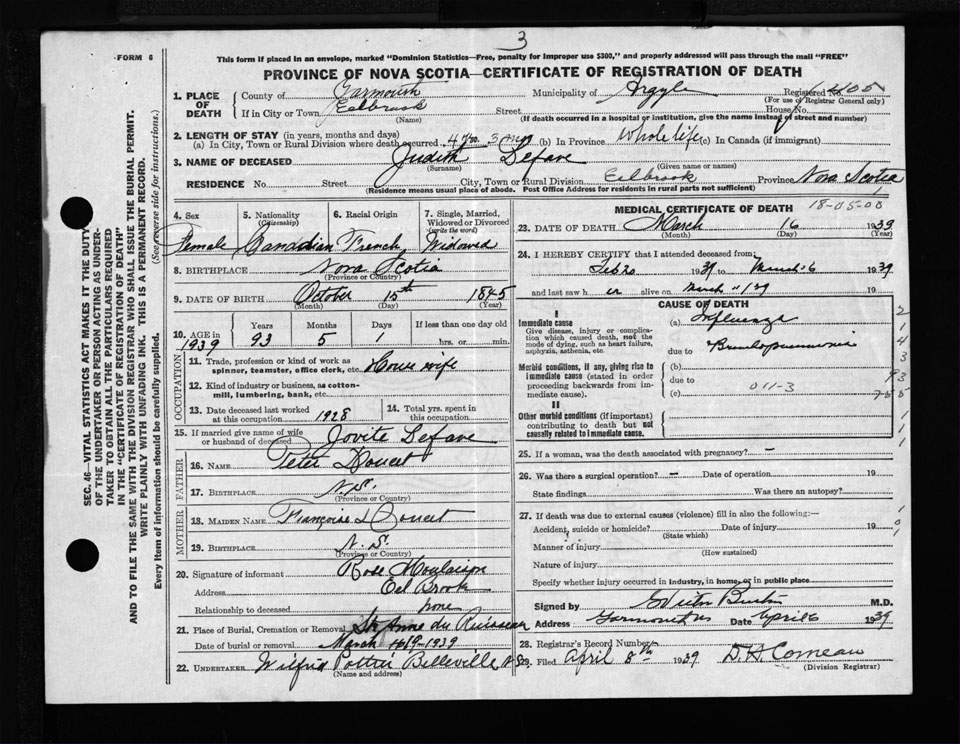 3
FORM 6
This form if placed in an envelope, marked "Dominion Statistics—Free, penalty for improper use $300," and properly addressed will pass through the mail "FREE"
PROVINCE OF NOVA SCOTIA—CERTIFICATE OF REGISTRATION OF DEATH
SEC. 46—VITAL STATISTICS ACT MAKES IT THE DUTY
OF THE UNDERTAKER OR PERSON ACTING AS UNDER-
TAKER TO OBTAIN ALL THE PARTICULARS REQUIRED
IN THE "CERTIFICATE OF REGISTRATION OF DEATH"
AND TO FILE THE SAME WITH THE DIVISION REGISTRAR WHO SHALL ISSUE THE BURIAL PERMIT.
WRITE PLAINLY WITH UNFADING INK. THIS IS A PERMANENT RECORD.
Every Item of information should be carefully supplied. (See reverse side for instructions.)
1. PLACE OF DEATH
County of Yarmouth Municipality of Argyle Registered No. 405
(For use of Registrar General only)
If in City or Town Eelbrook Street House No.
(Name) (If death occurred in a hospital or institution, give the name instead of street and number)
2. LENGTH OF STAY (in years, months and days)
(a) In City, Town or Rural Division where death occurred 4 yrs. 3 mos (b) In Province Whole life (c) In Canada (if immigrant)
3. NAME OF DECEASED Judith Lefave
(Surname) (Given name or names)
RESIDENCE No. Street City, Town or Rural Division Eelbrook Province Nova Scotia
(Residence means usual place of abode. Post Office Address for residents in rural parts not sufficient)
4. Sex
Female
5. Nationality
(Citizenship)
Canadian
6. Racial Origin
French
7. Single, Married,
Widowed or Divorced
(write the word)
Widowed
8. BIRTHPLACE Nova Scotia
(Province or Country)
9. DATE OF BIRTH October 15th 1845
(Month) (Day) (Year)
10. AGE in 1939
Years 93
Months 5
Days 1
If less than one day old
hrs. or min.
OCCUPATION
11. Trade, profession or kind of work as
spinner, teamster, office clerk, etc. House wife
12. Kind of industry or business, as cotton-
mill, lumbering, bank, etc.
13. Date deceased last worked
at this occupation 1928
14. Total yrs. spent in
this occupation
15. If married give name of wife
or husband of deceased Jovite Lefave
FATHER
16. NAME Peter Doucet
17. BIRTHPLACE N.S.
(Province or Country)
MOTHER
18. MAIDEN NAME Francoise Doucet
19. BIRTHPLACE N. S.
(Province or Country)
20. Signature of informant Rose Moulaison
Address Eel Brook
Relationship to deceased none
21. Place of Burial, Cremation or Removal Ste Anne du Ruisseau
Date of burial or removal March 1939
22. UNDERTAKER Wilfrid Pottier Belleville N.S.
(Name and address)
MEDICAL CERTIFICATE OF DEATH 18-05-00
23. DATE OF DEATH March 16 1939
(Month) (Day) (Year)
24. I HEREBY CERTIFY that I attended deceased from:
Feb 20 1939 to March 6 1939
and last saw h er alive on March 19
CAUSE OF DEATH
I
Immediate cause
Give disease, injury or complica-
tion which caused death, not the
mode of dying, such as heart failure,
asphyxia, asthenia, etc.
(a) Influenza
due to Bronchopneumonia
Morbid conditions, if any, giving rise to
immediate cause (stated in order
proceeding backwards from im-
mediate cause).
(b)
due to 011-3
(c)
II
Other morbid conditions (if important)
contributing to death but not
causally related to immediate cause.
25. If a woman, was the death associated with pregnancy? –
26. Was there a surgical operation? – Date of operation 19
State findings Was there an autopsy?
27. If death was due to external causes (violence) fill in also the following:—
Accident, suicide or homicide? Date of injury 19
(State which)
Manner of injury
(How sustained)
Nature of injury
Specify whether injury occurred in industry, in home, or in public place
Signed by M.D.
Address Yarmouth NS Date April 6 1939
28. Registrar's Record Number
29. Filed April 8th 1939 D. H. Comeau
(Division Registrar)